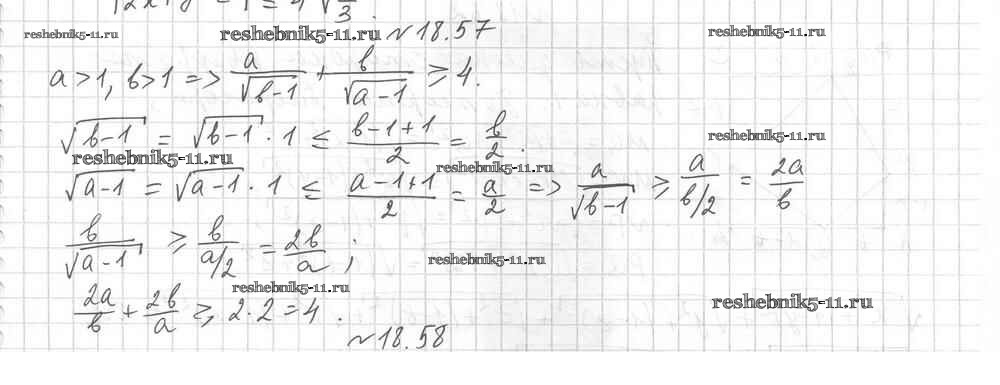 √3.
reshebnik5-11.ru reshebnik5-11.ru №18.57 reshebnik5-11.ru
a>1, b>1 => a/√(b-1) + b/√(a-1) ≥ 4.
√(b-1) = √(b-1) · 1 ≤ (b-1+1)/2 = b/2. reshebnik5-11.ru
reshebnik5-11.ru reshebnik5-11.ru
√(a-1) = √(a-1) · 1 ≤ (a-1+1)/2 = a/2 => a/√(b-1) ≥ a/(b/2) = 2a/b
b/√(a-1) ≥ b/(a/2) = 2b/a; reshebnik5-11.ru
reshebnik5-11.ru reshebnik5-11.ru
2a/b + 2b/a ≥ 2·2=4.
№18.58